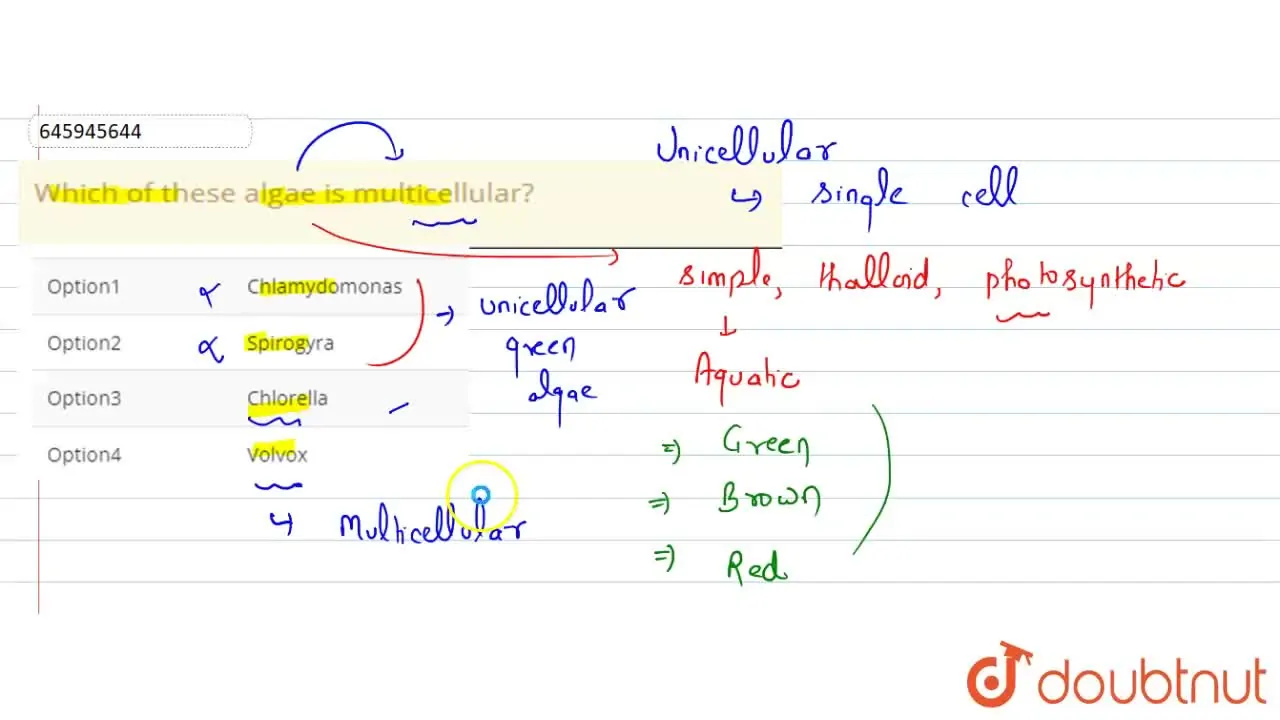 645945644
Which of these algae is multicellular?
Option1 Chlamydomonas
Option2 Spirogyra
Option3 Chlorella
Option4 Volvox
Multicellular
unicellular
green
algae
Unicellular
↳ single cell
simple, thalloid, photosynthetic
↓
Aquatic
⇒ Green
⇒ Brown
⇒ Red
doubtnut